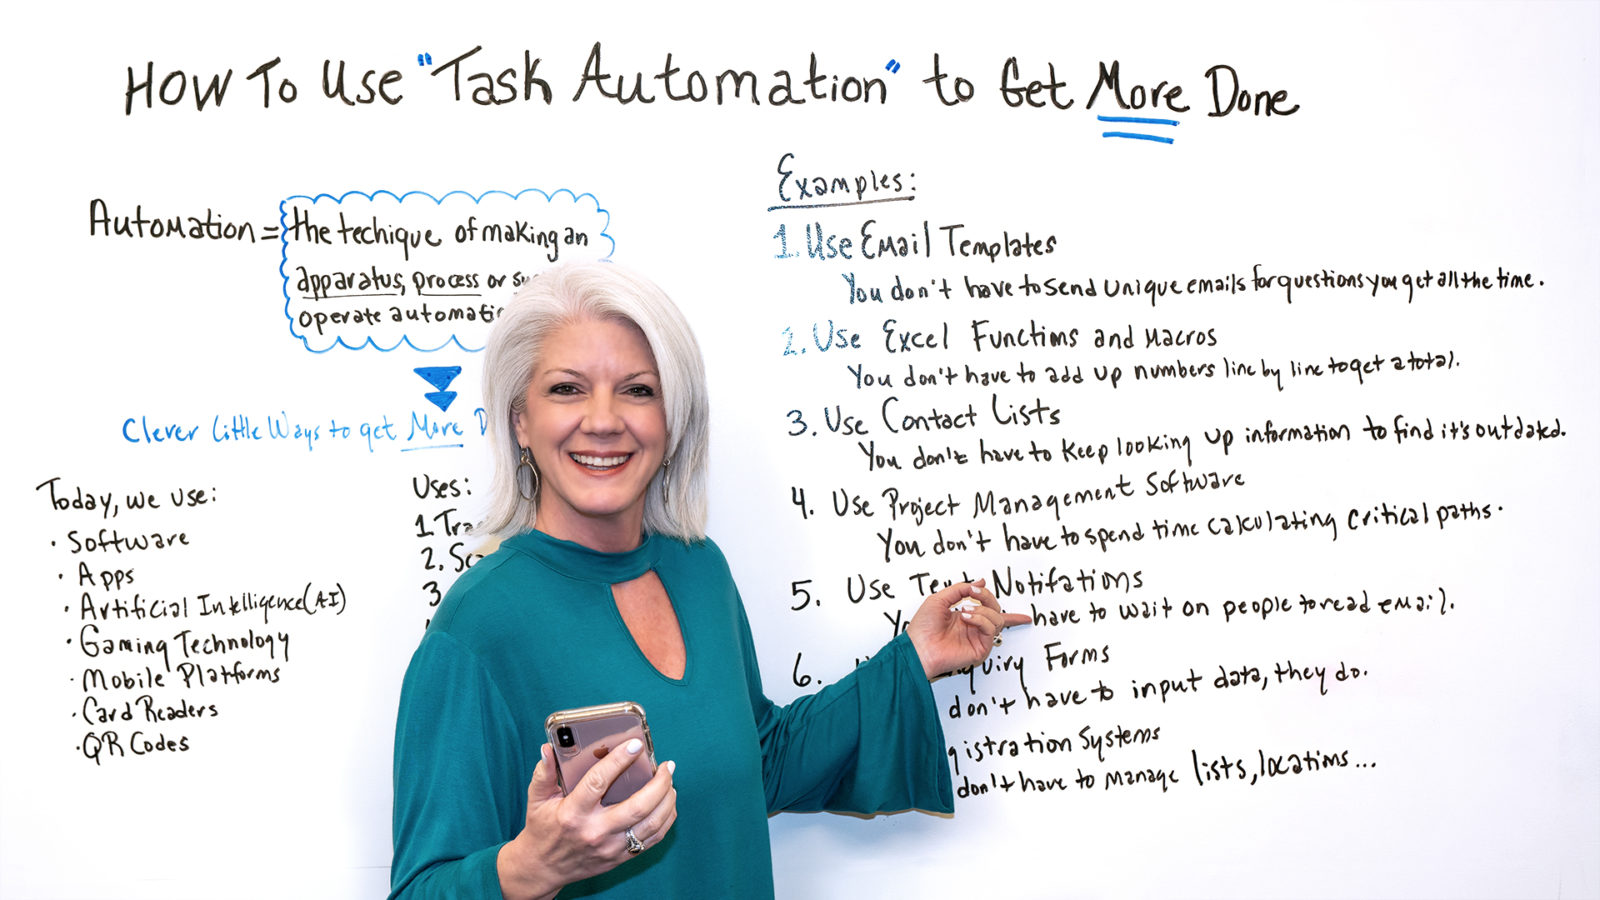 How To Use "Task Automation" to Get More Done
Automation = the techique of making an
apparatus, process or
operate
Clever Little Ways to get More
Today, we use:
· Software
· Apps
· Artificial Intelligence (AI)
· Gaming Technology
· Mobile Platforms
· Card Readers
· QR Codes
Uses:
1.
2.
3
Examples:
1. Use Email Templates
You don't have to send unique emails for questions you get all the time.
2. Use Excel Functions and Macros
You don't have to add up numbers line by line to get a total.
3. Use Contact Lists
You don't have to keep looking up information to find it's outdated.
4. Use Project Management Software
You don't have to spend time calculating critical paths.
5. Use Text Notifations
have to wait on people to read email.
6. Forms
don't have to input data, they do.
Systems
don't have to manage lists, locations...